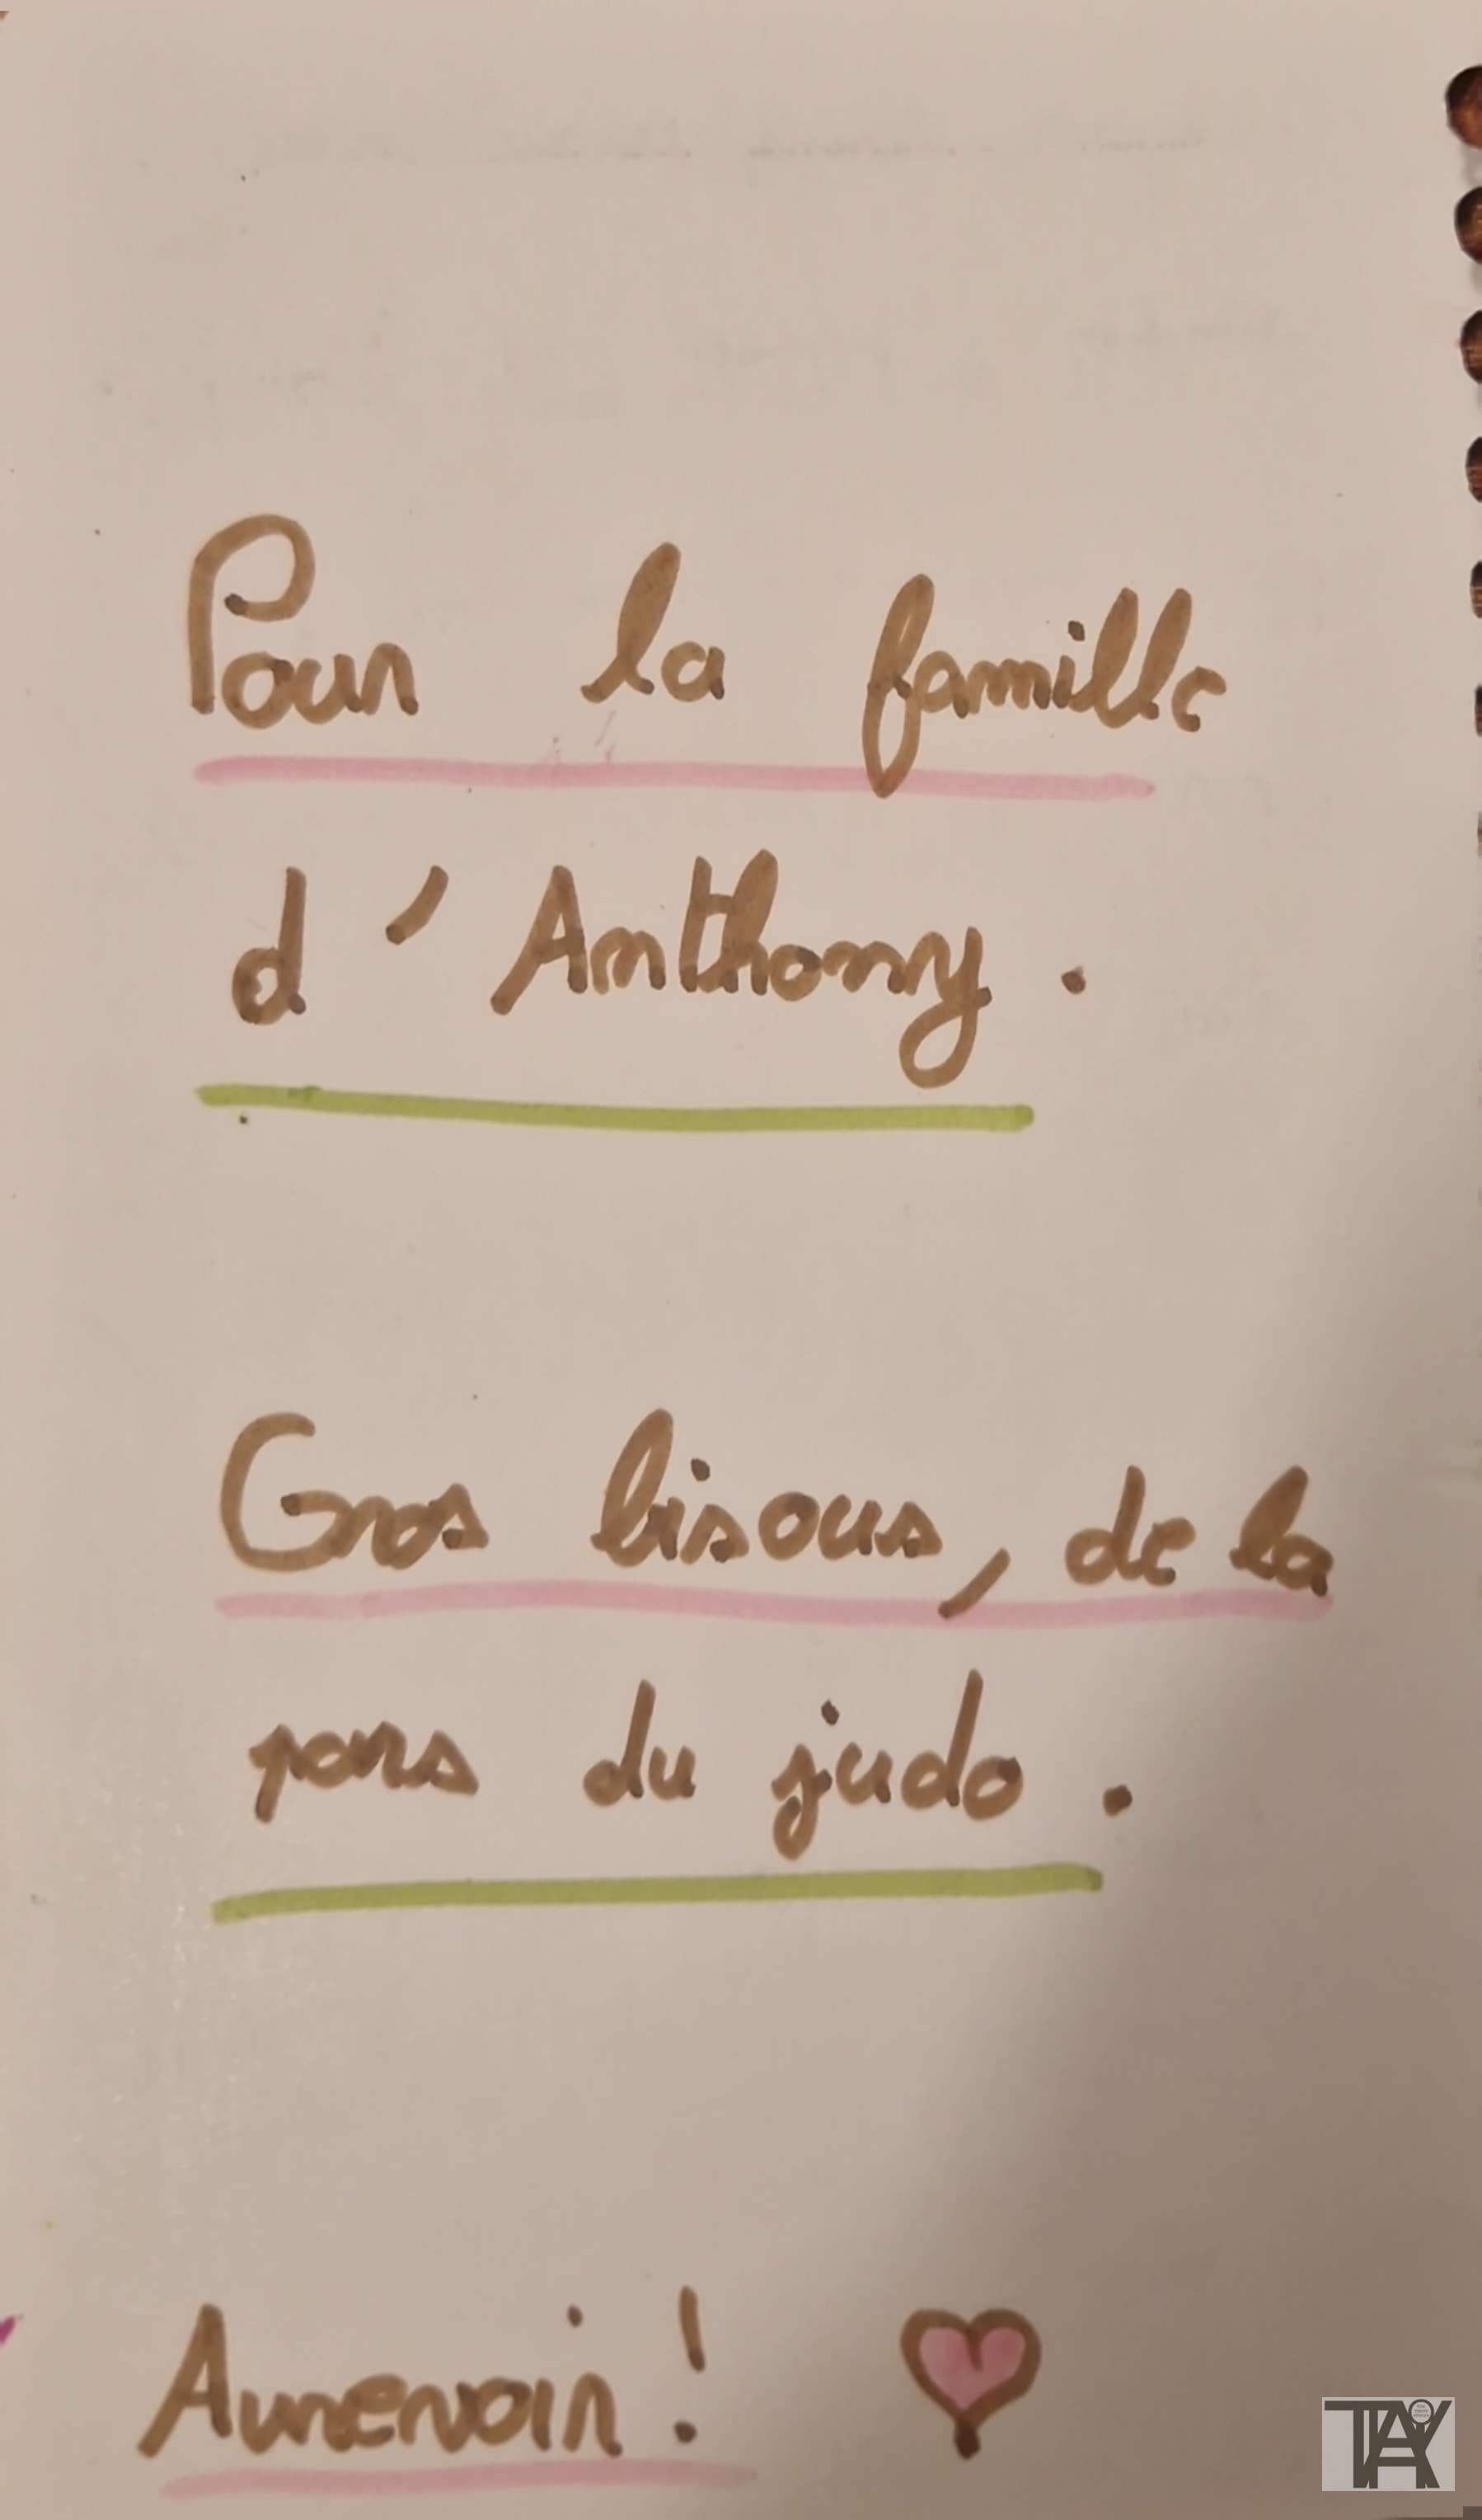 Pour la famille
d'Anthony.
Gros bisous, de la
pars du judo.
Aurevoir!
TAK